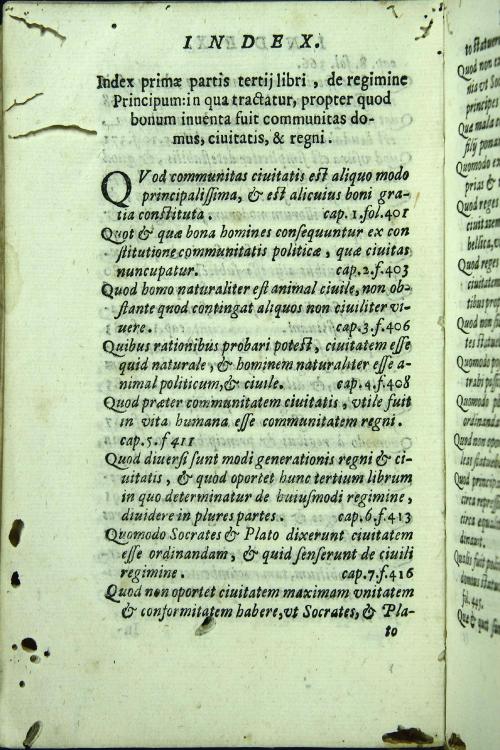 INDEX.
Index primæ partis tertij libri, de regimine
Principum: in qua tractatur, propter quod
bonum inuenta fuit communitas do-
mus, ciuitatis, & regni.
QVod communitas ciuitatis est aliquo modo
principalissima, & est alicuius boni gra-
tia constituta. cap. 1. fol. 401
Quot & quæ bona homines consequuntur ex con
stitutione communitatis politicæ, quæ ciuitas
nuncupatur. cap. 2. f. 403
Quod homo naturaliter est animal ciuile, non ob-
stante quod contingat aliquos non ciuiliter vi-
uere. cap. 3. f. 406
Quibus rationibus probari potest, ciuitatem esse
quid naturale, & hominem naturaliter esse a-
nimal politicum, & ciuile. cap. 4. f. 408
Quod præter communitatem ciuitatis, vtile fuit
in vita humana esse communitatem regni.
cap. 5. f 411
Quod diuersi sunt modi generationis regni & ci-
uitatis, & quod oportet hunc tertium librum
in quo determinatur de huiusmodi regimine,
diuidere in plures partes. cap. 6. f. 413
Quomodo Socrates & Plato dixerunt ciuitatem
esse ordinandam, & quid senserunt de ciuili
regimine. cap. 7. f. 416
Quod non oportet ciuitatem maximam vnitatem
& conformitatem habere, vt Socrates, & Pla-
to